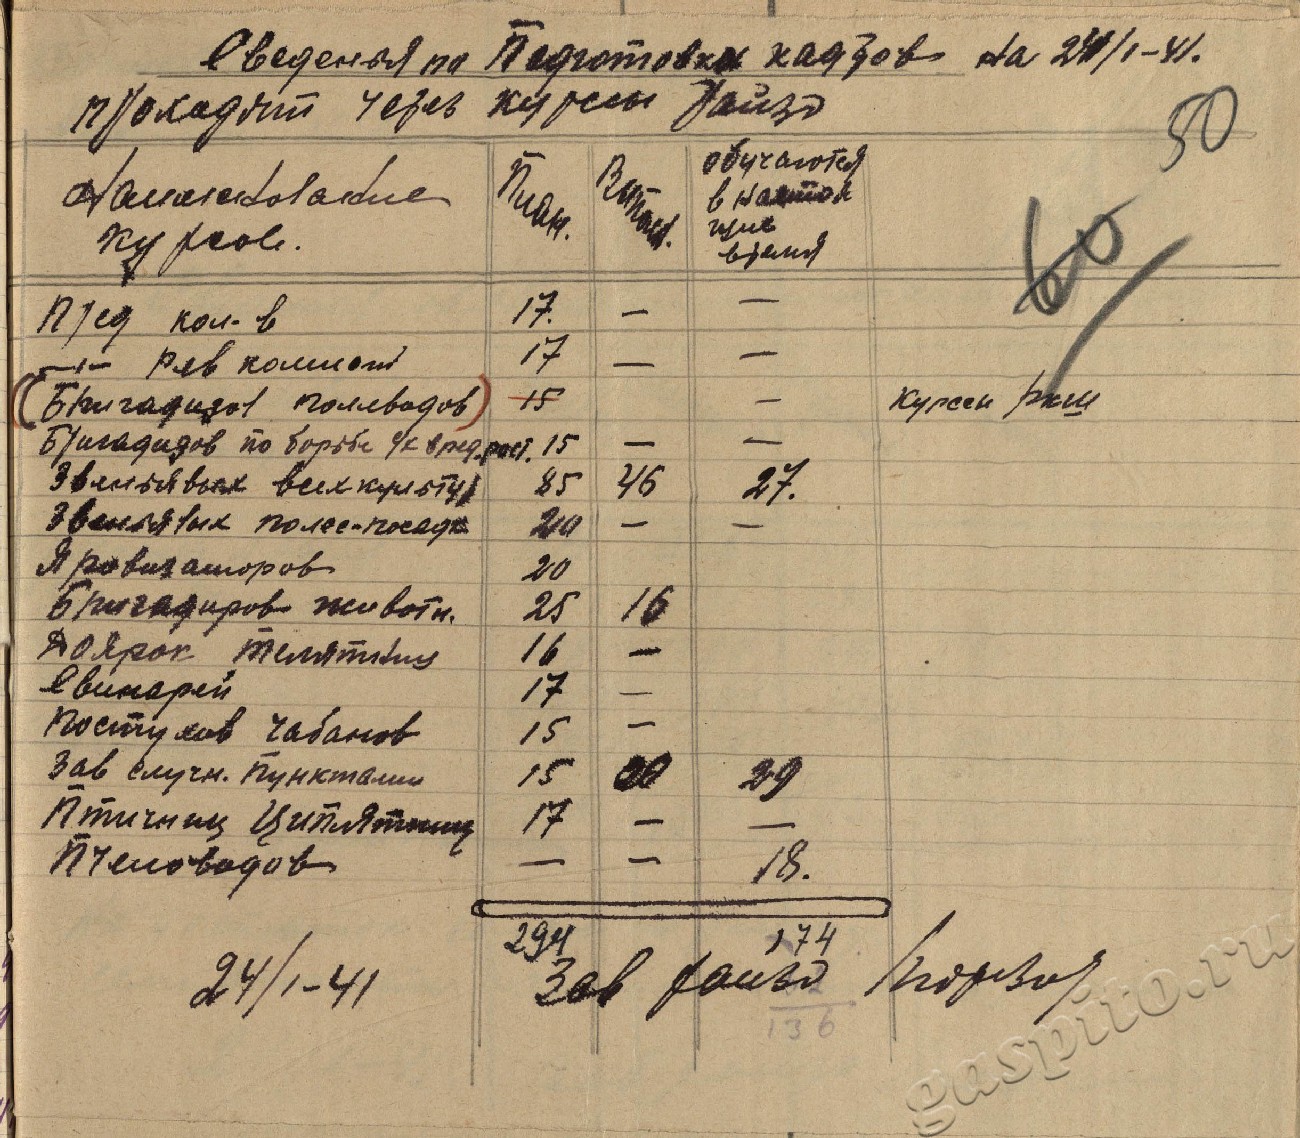 Сведенья по Подготовки кадров на 24/1-41.
проходят через курсы Райзо
50
Наименование курсов. План. Выпол. обучаются в настоя щие время
60
Пред кол-в 17. — —
—"— рев комисий 17 — —
(Бригадиров полеводов) 15 — курсы РКШ
Бригадиров по борьбе с/х вред. раст. 15 — —
Звеньявых всех культур 85 46 27.
Звеньявых полес-посадк 20 — —
Яровизаторов 20
Бригадиров животн. 25 16
Доярок телятниц 16 —
Свинарей 17 —
Постухов чабанов 15 —
Зав случн. пунктами 15 20 29
Птичниц Циплятниц 17 — —
Пчеловодов — — 18.
294 174
24/1-41 Зав райзо
136
gaspito.ru